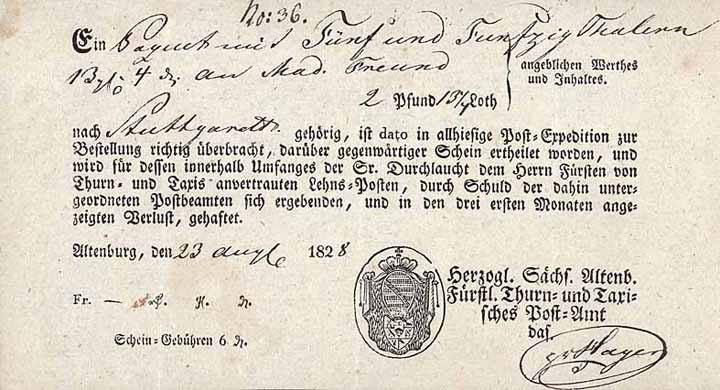 No: 36.
Ein Paquet mit Fünf und Funfzig Thalern
13 4 an Mad. Freund
angeblichen Werthes
und Inhaltes.
2 Pfund 15¼ Loth
nach Stuttgardt gehörig, ist dato in allhiesige Post-Expedition zur
Bestellung richtig überbracht, darüber gegenwärtiger Schein ertheilet worden, und
wird für dessen innerhalb Umfanges der Sr. Durchlaucht dem Herrn Fürsten von
Thurn- und Taxis anvertrauten Lehns-Posten, durch Schuld der dahin unter-
geordneten Postbeamten sich ergebenden, und in den drei ersten Monaten ange-
zeigten Verlust, gehaftet.
Altenburg, den 23 1828
Herzogl. Sächs. Altenb.
Fürstl. Thurn- und Taxi-
sches Post-Amt
das.
Fr. —
Schein-Gebühren 6